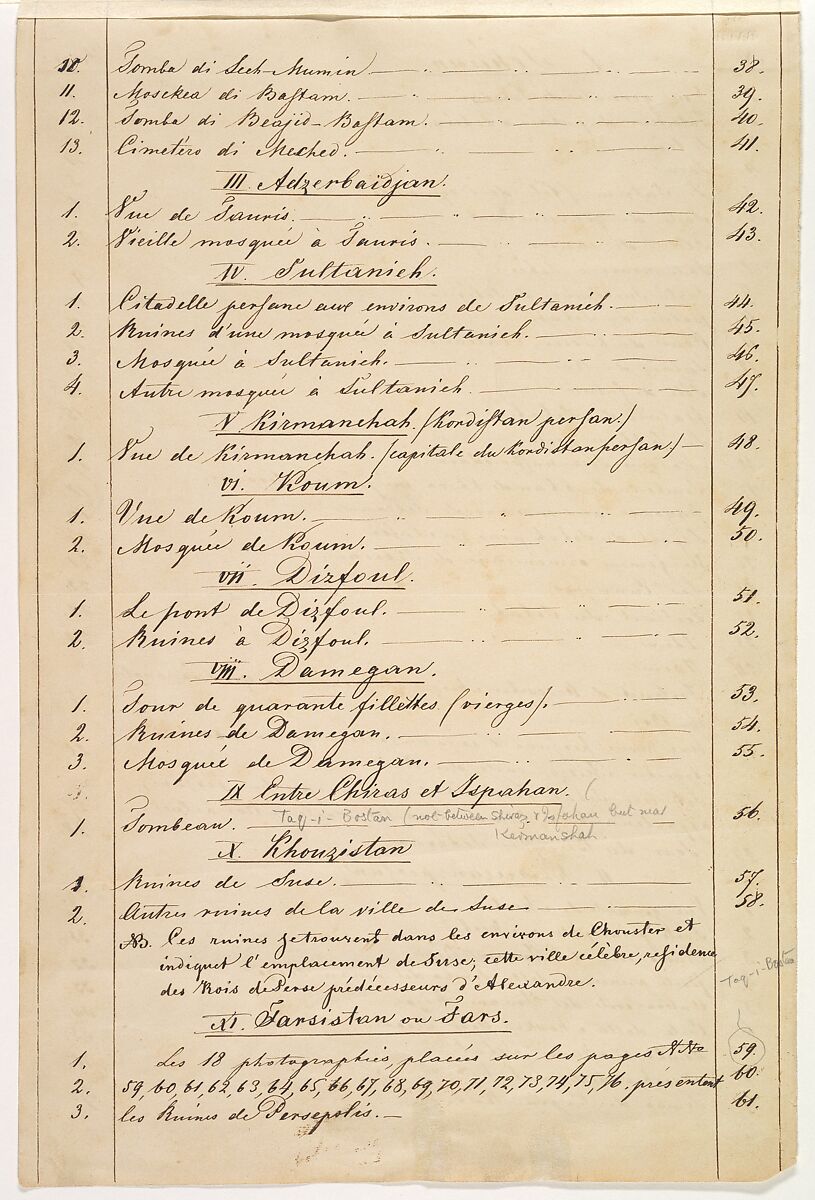 10. Tomba di Sech-Mumin. 38.
11. Mosckea di Bastam. 39.
12. Tomba di Beajid-Bastam. 40.
13. Cimetero di Meched. 41.
III Adzerbaïdjan.
1. Vue de Tauris. 42.
2. Vieille mosquée à Tauris. 43.
IV. Sultanieh.
1. Citadelle persane aux environs de Sultanieh. 44.
2. Ruines d'une mosquée à Sultanieh. 45.
3. Mosquée à Sultanieh. 46.
4. Autre mosquée à Sultanieh. 47.
V Kirmanchah. (Kordistan persan.)
1. Vue de Kirmanchah. (capitale du Kordistan persan.) 48.
VI. Koum.
1. Vue de Koum. 49.
2. Mosquée de Koum. 50.
VII. Dizfoul.
1. Le pont de Dizfoul. 51.
2. Ruines à Dizfoul. 52.
VIII. Damegan.
1. Tour de quarante fillettes (vierges). 53.
2. Ruines de Damegan. 54.
3. Mosquée de Damegan. 55.
IX Entre Chiras et Ispahan.
1. Tombeau. Taq-i-Bostan (not between Shiraz & Isfahan but near 56.
Kermanshah
X. Khouzistan
1. Ruines de Suse. 57.
2. Autres ruines de la ville de Suse 58.
NB. Ces ruines se trouvent dans les environs de Chouster et
indiquet l'emplacement de Suse, cette ville célèbre, residence
des Rois de Perse prédécesseurs d'Alexandre.
Taq-i-Bostan
XI. Farsistan ou Fars.
1. Les 18 photographies, placées sur les pages NNo 59.
2. 59, 60, 61, 62, 63, 64, 65, 66, 67, 68, 69, 70, 71, 72, 73, 74, 75, 76. présentent 60.
3. les Ruines de Persepolis. 61.